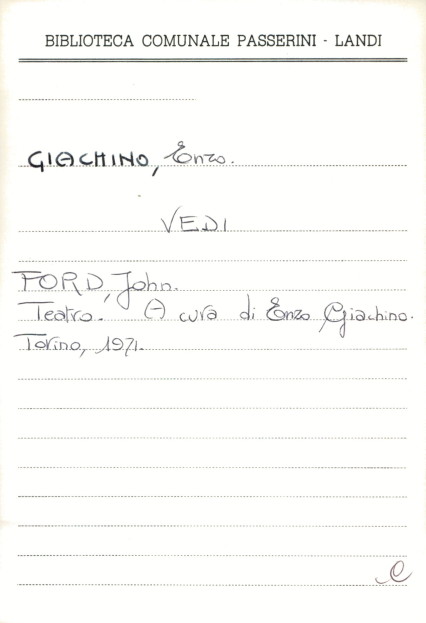 BIBLIOTECA COMUNALE PASSERINI - LANDI
GIACHINO, Enzo.
VEDI
FORD, John.
Teatro. A cura di Enzo Giachino.
Torino, 1971.
C